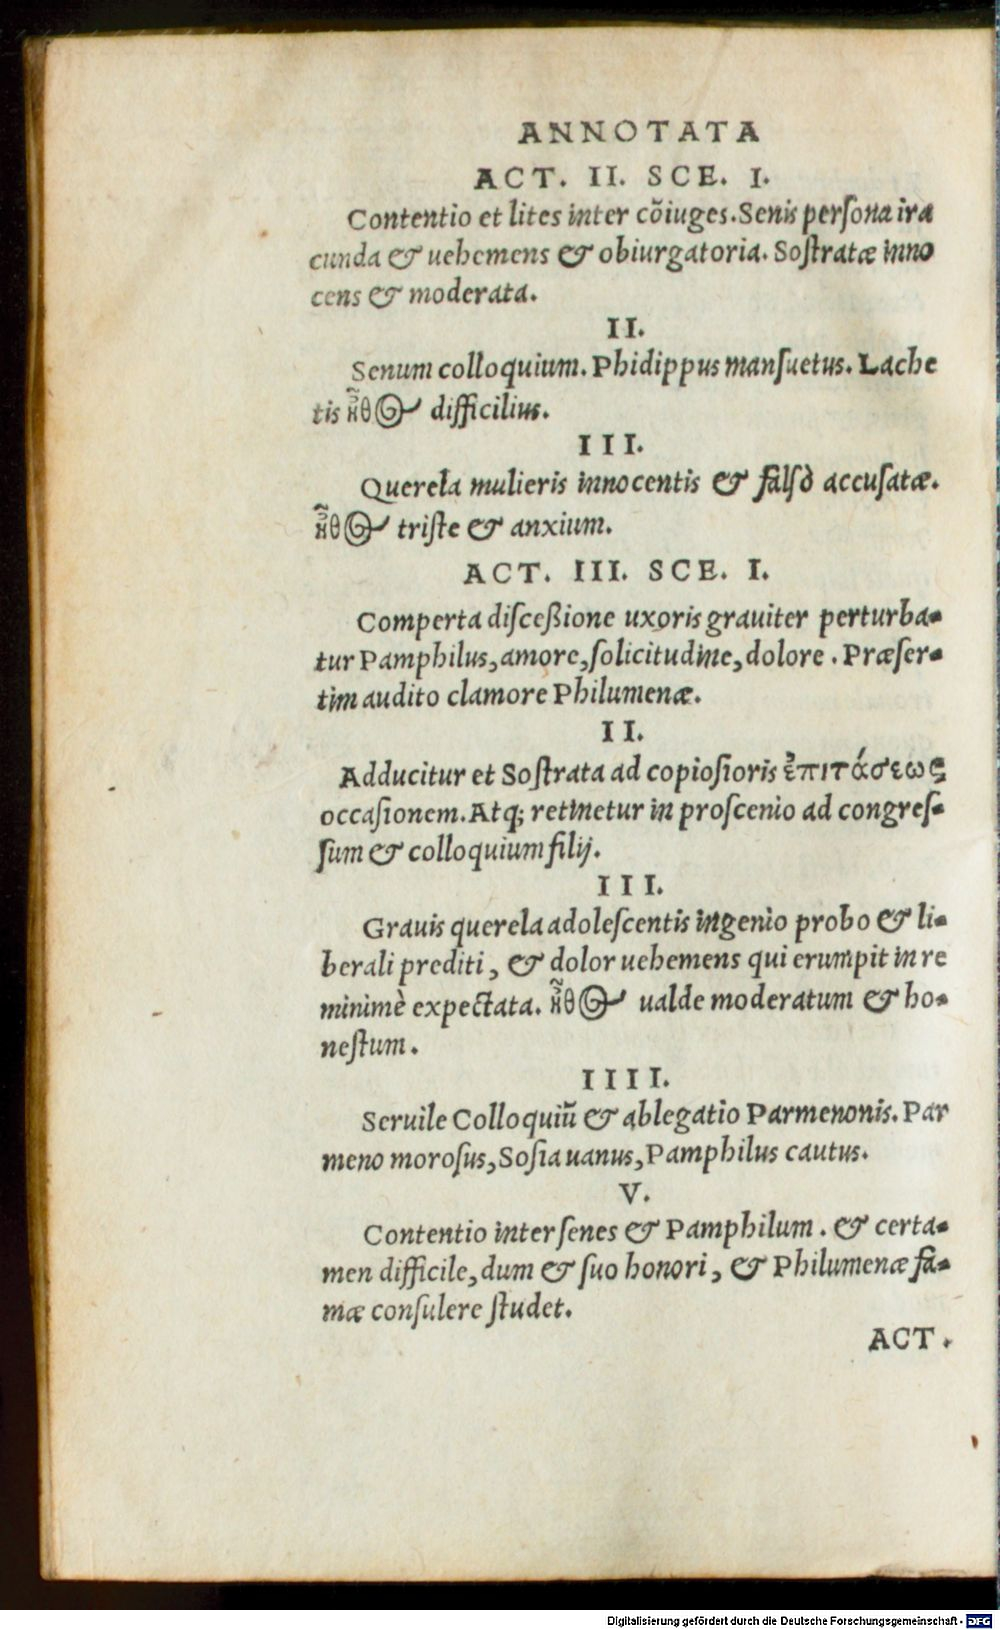 ANNOTATA
ACT. II. SCE. I.
Contentio et lites inter cõiuges. Senis perſona ira
cunda & uehemens & obiurgatoria. Soſtratæ inno
cens & moderata.
II.
Senum colloquium. Phidippus manſuetus. Lache
tis ἦθος difficilius.
III.
Querela mulieris innocentis & falſò accuſatæ.
ἦθος triſte & anxium.
ACT. III. SCE. I.
Comperta diſceßione uxoris grauiter perturba-
tur Pamphilus, amore, ſolicitudine, dolore. Præſer-
tim audito clamore Philumenæ.
II.
Adducitur et Soſtrata ad copioſioris ἐπιτάσεως
occaſionem. Atq; retinetur in proſcenio ad congreſ-
ſum & colloquium filij.
III.
Grauis querela adoleſcentis ingenio probo & li-
berali prediti, & dolor uehemens qui erumpit in re
minimè expectata. ἦθος ualde moderatum & ho-
neſtum.
IIII.
Seruile Colloquiũ & ablegatio Parmenonis. Par
meno moroſus, Soſia uanus, Pamphilus cautus.
V.
Contentio inter ſenes & Pamphilum. & certa-
men difficile, dum & ſuo honori, & Philumenæ fa-
mæ conſulere ſtudet.
ACT.
Digitalisierung gefördert durch die Deutsche Forschungsgemeinschaft - DFG